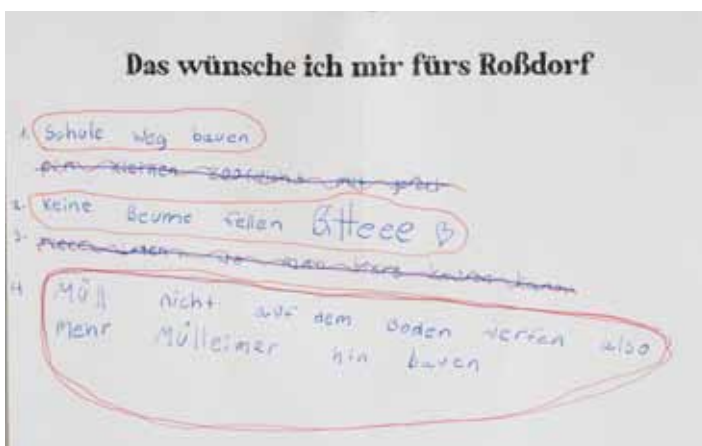 Das wünsche ich mir fürs Roßdorf
1. Schule weg bauen
ein kleinen mit
2. Keine Beume fellen Bitteee
3. wo man
4 Müll nicht auf dem Boden werfen also
Mehr Mülleimer hin bauen